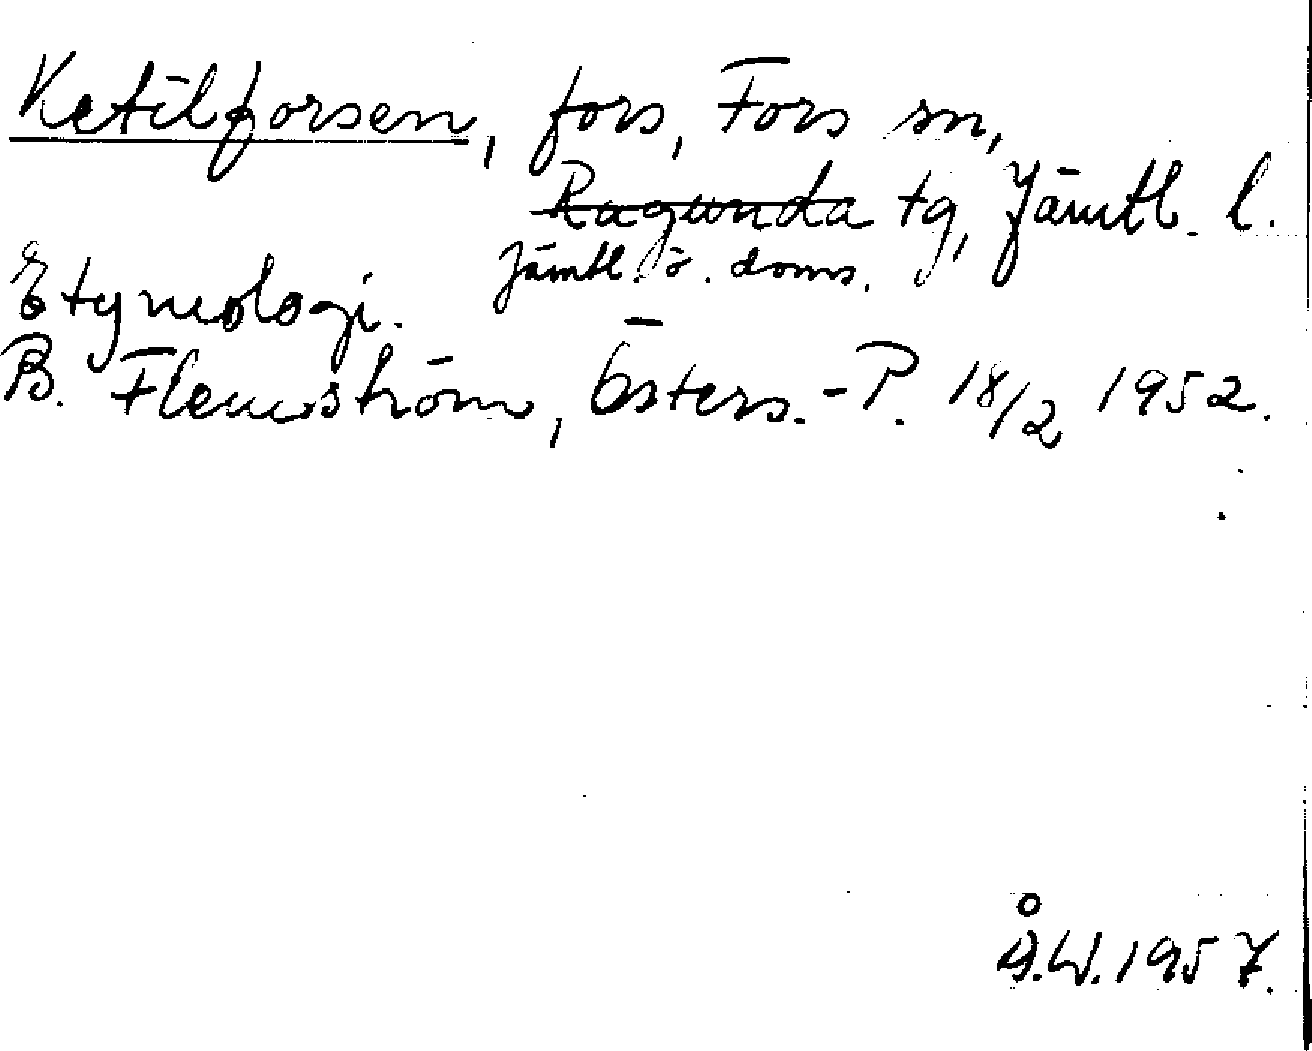 Ketilforsen, fors, Fors sn,
Ragunda tg, Jämtl. l.
Jämtl. ö. doms.
Etymologi.
B. Flemström, Österns.-P. 18/2 1952.
Å.W. 1957.